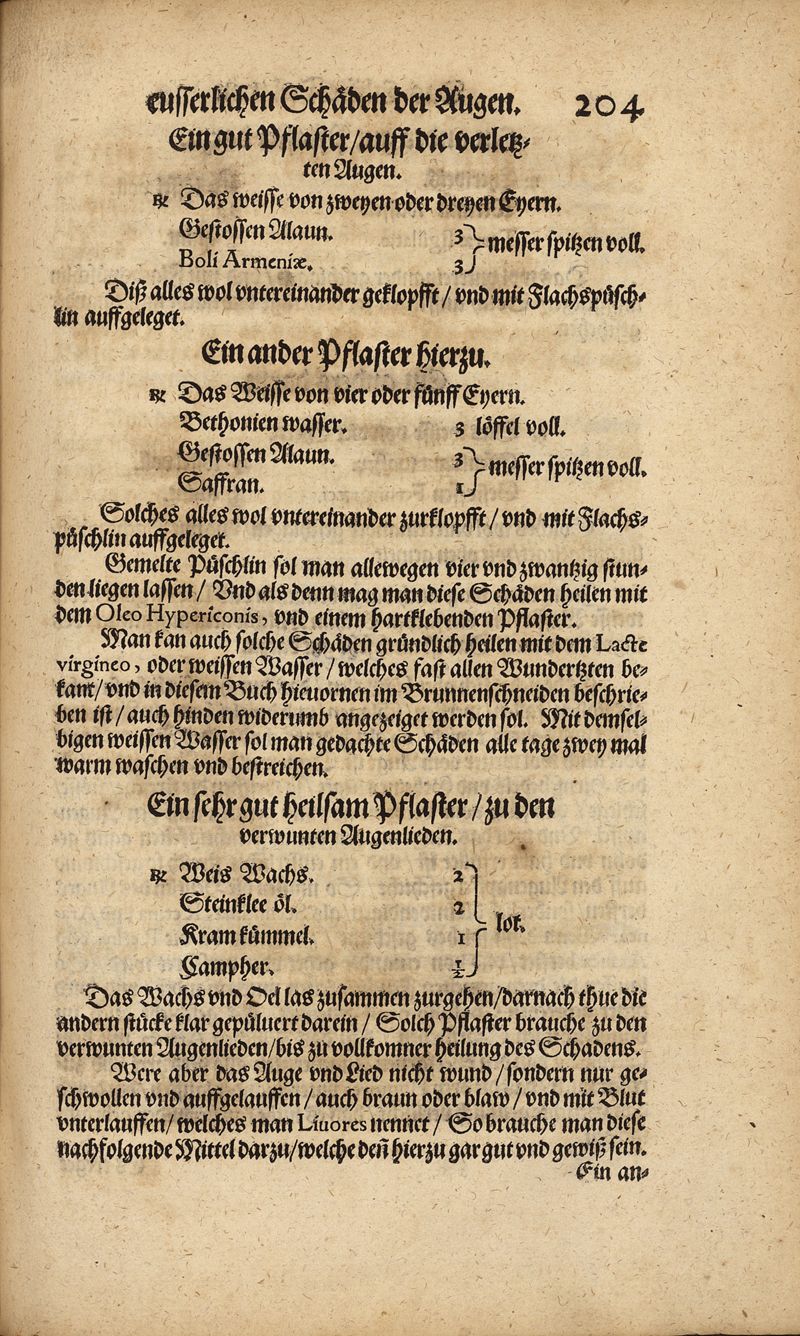 eusserlichen Schåden der Augen. 204
Ein gut Pflaster/auff die verletz⸗
ten Augen.
℞ Das weisse von zweyen oder dreyen Eyern.
Gestossen Alaun. 3
messer spitzen voll.
Boli Armeniæ. 3
Diß alles wol vntereinander geklopfft / vnd mit Flachspůsch⸗
lin auffgeleget.
Ein ander Pflaster hierzu.
℞ Das Weisse von vier oder fůnff Eyern.
Bethonien wasser. 3 lôffel voll.
Gestossen Alaun. 3
messer spitzen voll.
Saffran. 1
Solches alles wol vntereinander zurklopfft / vnd mit Flachs⸗
půschlin auffgeleget.
Gemelte Půschlin sol man allewegen vier vnd zwantzig stun⸗
den liegen lassen / Vnd als denn mag man diese Schåden heilen mit
dem Oleo Hypericonis, vnd einem hartklebenden Pflaster.
Man kan auch solche Schåden grůndlich heilen mit dem Lacte
virgineo, oder weissen Wasser / welches fast allen Wundertzten be⸗
kant/ vnd in diesem Buch hieuornen im Brunnenschneiden beschrie⸗
ben ist / auch hinden widerumb angezeiget werden sol. Mit demsel⸗
bigen weissen Wasser sol man gedachte Schåden alle tage zwey mal
warm waschen vnd bestreichen.
Ein sehr gut heilsam Pflaster / zu den
verwunten Augenlieden.
℞ Weis Wachs. 2
Steinklee ôl. 2
lot.
Kramkůmmel. 1
Campher. ½
Das Wachs vnd Oel las zusammen zurgehen/darnach thue die
andern stůcke klar gepůluert darein / Solch Pflaster brauche zu den
verwunten Augenlieden/bis zu vollkomner heilung des Schadens.
Were aber das Auge vnd Lied nicht wund / sondern nur ge⸗
schwollen vnd auffgelauffen / auch braun oder blaw / vnd mit Blut
vnterlauffen/ welches man Liuores nennet / So brauche man diese
nachfolgende Mittel darzu/welche deñ hierzu gar gut vnd gewiß sein.
Ein an⸗